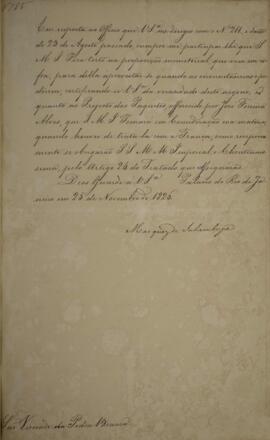 Em resposta ao Officio que V. Sª. me dirigio com o Nº 211, e data
de 23 de Agosto passado, cumpre-me participar-lhe que S.
M. I. Fica certo na proposição ministerial que era em co-
fra, para della aproveitar-se quando as circumstancias pe-
direm, certificando a V. Sª. da veracidade deste negocio. E
quanto ao Projecto dos Paquetes offerecido por Jose Pereira
Alves, que S. M. I. Tomará em Consideração na materia,
quando houver de tratar-la com a França, como
mente se Augurão S. S. M. M. Imperial, e Christianis-
sima, pelo Artigo 24 do Tratado que Assignarão.
Deos Guarde a V. Sª. Palacio do Rio de Ja-
neiro em 25 de Novembro 1826.
Marquez de Inhambupe
Snr. Visconde da Pedra Branca